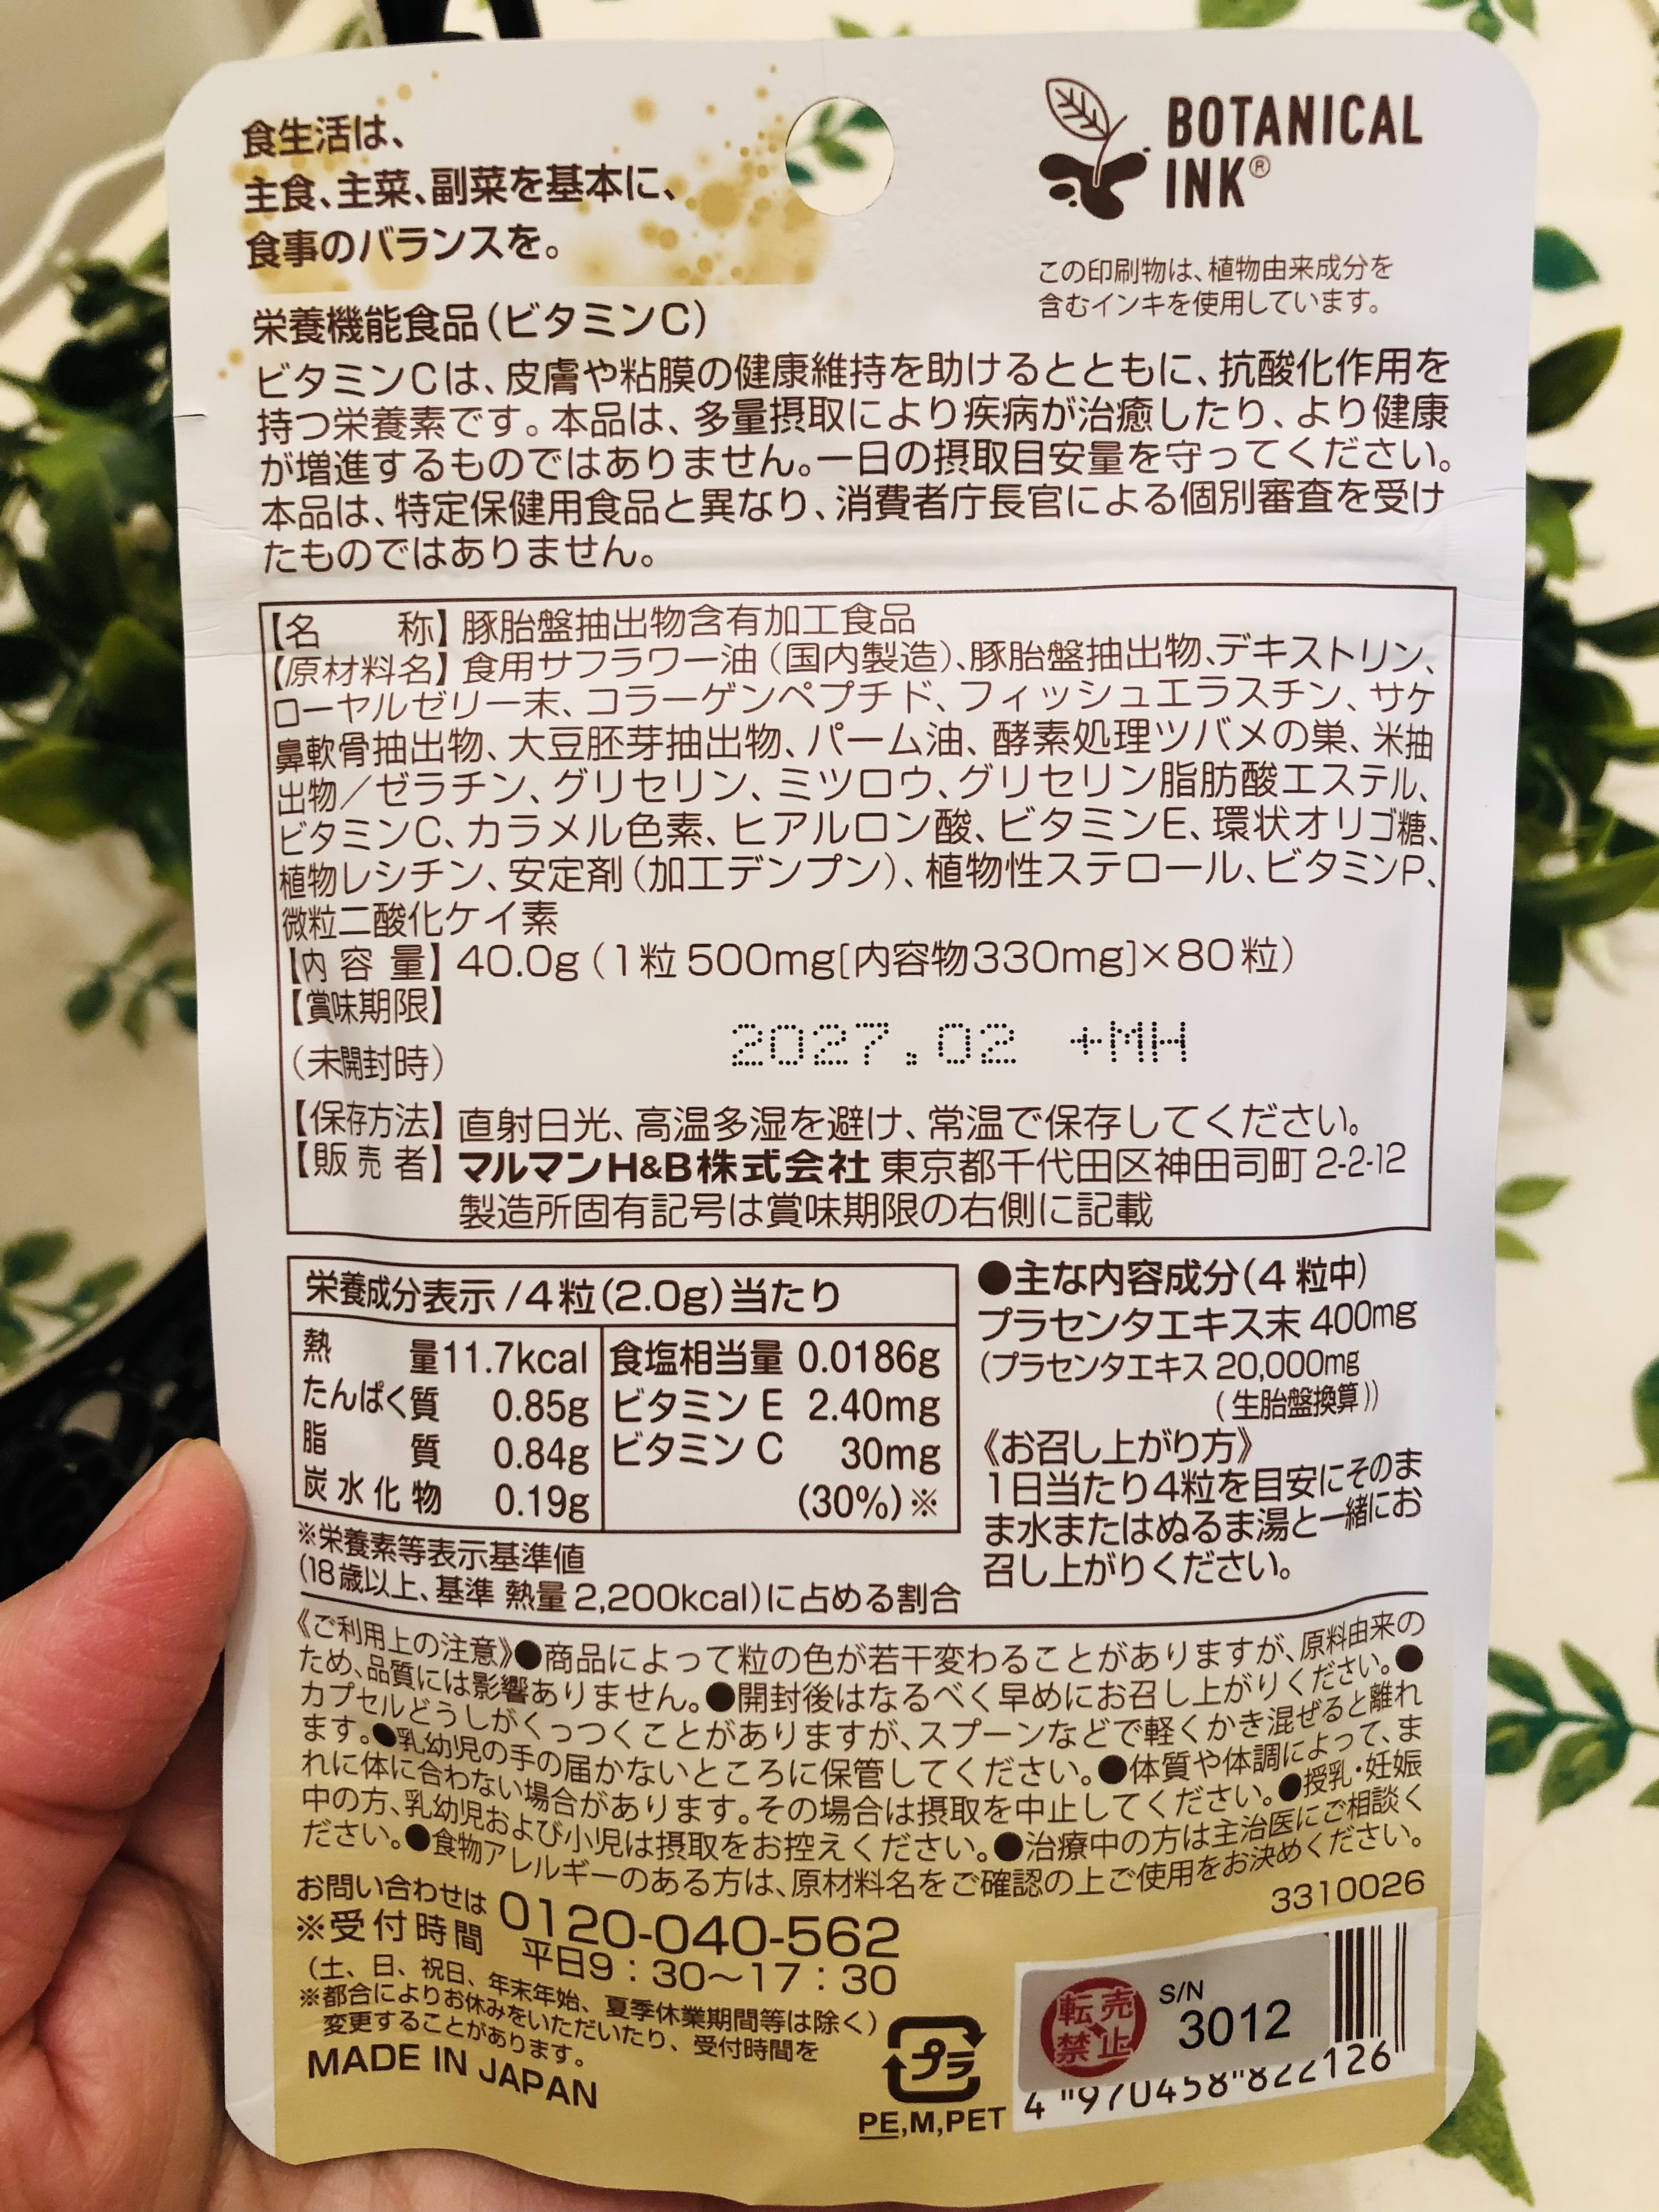 食生活は、
主食、主菜、副菜を基本に、
食事のバランスを。
BOTANICAL
INK®
この印刷物は、植物由来成分を
含むインキを使用しています。
栄養機能食品(ビタミンC)
ビタミンCは、皮膚や粘膜の健康維持を助けるとともに、抗酸化作用を
持つ栄養素です。本品は、多量摂取により疾病が治癒したり、より健康
が増進するものではありません。一日の摂取目安量を守ってください。
本品は、特定保健用食品と異なり、消費者庁長官による個別審査を受け
たものではありません。
【名　　称】豚胎盤抽出物含有加工食品
【原材料名】食用サフラワー油(国内製造)、豚胎盤抽出物、デキストリン、
ローヤルゼリー末、コラーゲンペプチド、フィッシュエラスチン、サケ
鼻軟骨抽出物、大豆胚芽抽出物、パーム油、酵素処理ツバメの巣、米抽
出物／ゼラチン、グリセリン、ミツロウ、グリセリン脂肪酸エステル、
ビタミンC、カラメル色素、ヒアルロン酸、ビタミンE、環状オリゴ糖、
植物レシチン、安定剤(加工デンプン)、植物性ステロール、ビタミンP、
微粒二酸化ケイ素
【内容量】40.0g(1粒500mg[内容物330mg]×80粒)
【賞味期限】
2027.02 +MH
(未開封時)
【保存方法】直射日光、高温多湿を避け、常温で保存してください。
【販売者】マルマンH&B株式会社 東京都千代田区神田司町2-2-12
製造所固有記号は賞味期限の右側に記載
栄養成分表示/4粒(2.0g)当たり
熱　量 11.7kcal 食塩相当量 0.0186g
たんぱく質 0.85g ビタミンE 2.40mg
脂　質 0.84g ビタミンC 30mg
炭水化物 0.19g (30%)※
※栄養素等表示基準値
(18歳以上、基準 熱量2,200kcal)に占める割合
●主な内容成分(4粒中)
プラセンタエキス末 400mg
(プラセンタエキス 20,000mg
(生胎盤換算))
《お召し上がり方》
1日当たり4粒を目安にそのま
ま水またはぬるま湯と一緒にお
召し上がりください。
《ご利用上の注意》●商品によって粒の色が若干変わることがありますが、原料由来の
ため、品質には影響ありません。●開封後はなるべく早めにお召し上がりください。●
カプセルどうしがくっつくことがありますが、スプーンなどで軽くかき混ぜると離れ
ます。●乳幼児の手の届かないところに保管してください。●体質や体調によって、ま
れに体に合わない場合があります。その場合は摂取を中止してください。●授乳・妊娠
中の方、乳幼児および小児は摂取をお控えください。●治療中の方は主治医にご相談く
ださい。●食物アレルギーのある方は、原材料名をご確認の上ご使用をお決めください。
3310026
お問い合わせは 0120-040-562
※受付時間 平日9：30～17：30
(土、日、祝日、年末年始、夏季休業期間等は除く)
※都合によりお休みをいただいたり、受付時間を
変更することがあります。
MADE IN JAPAN
プラ
PE,M,PET
転売
禁止
S/N
3012
4 970458 822126